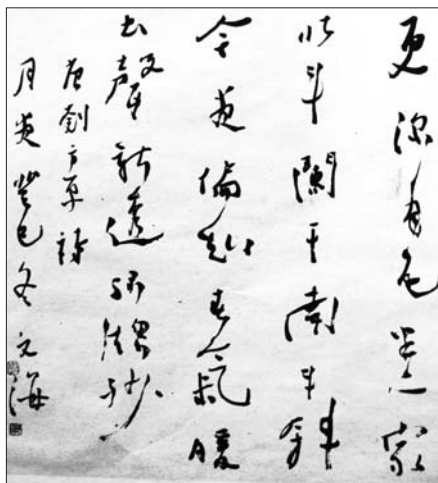 更深月色半人家
北斗闌干南斗斜
今夜偏知春氣暖
虫聲新透綠窗紗
唐劉方平詩
月夜 癸巳冬 文海